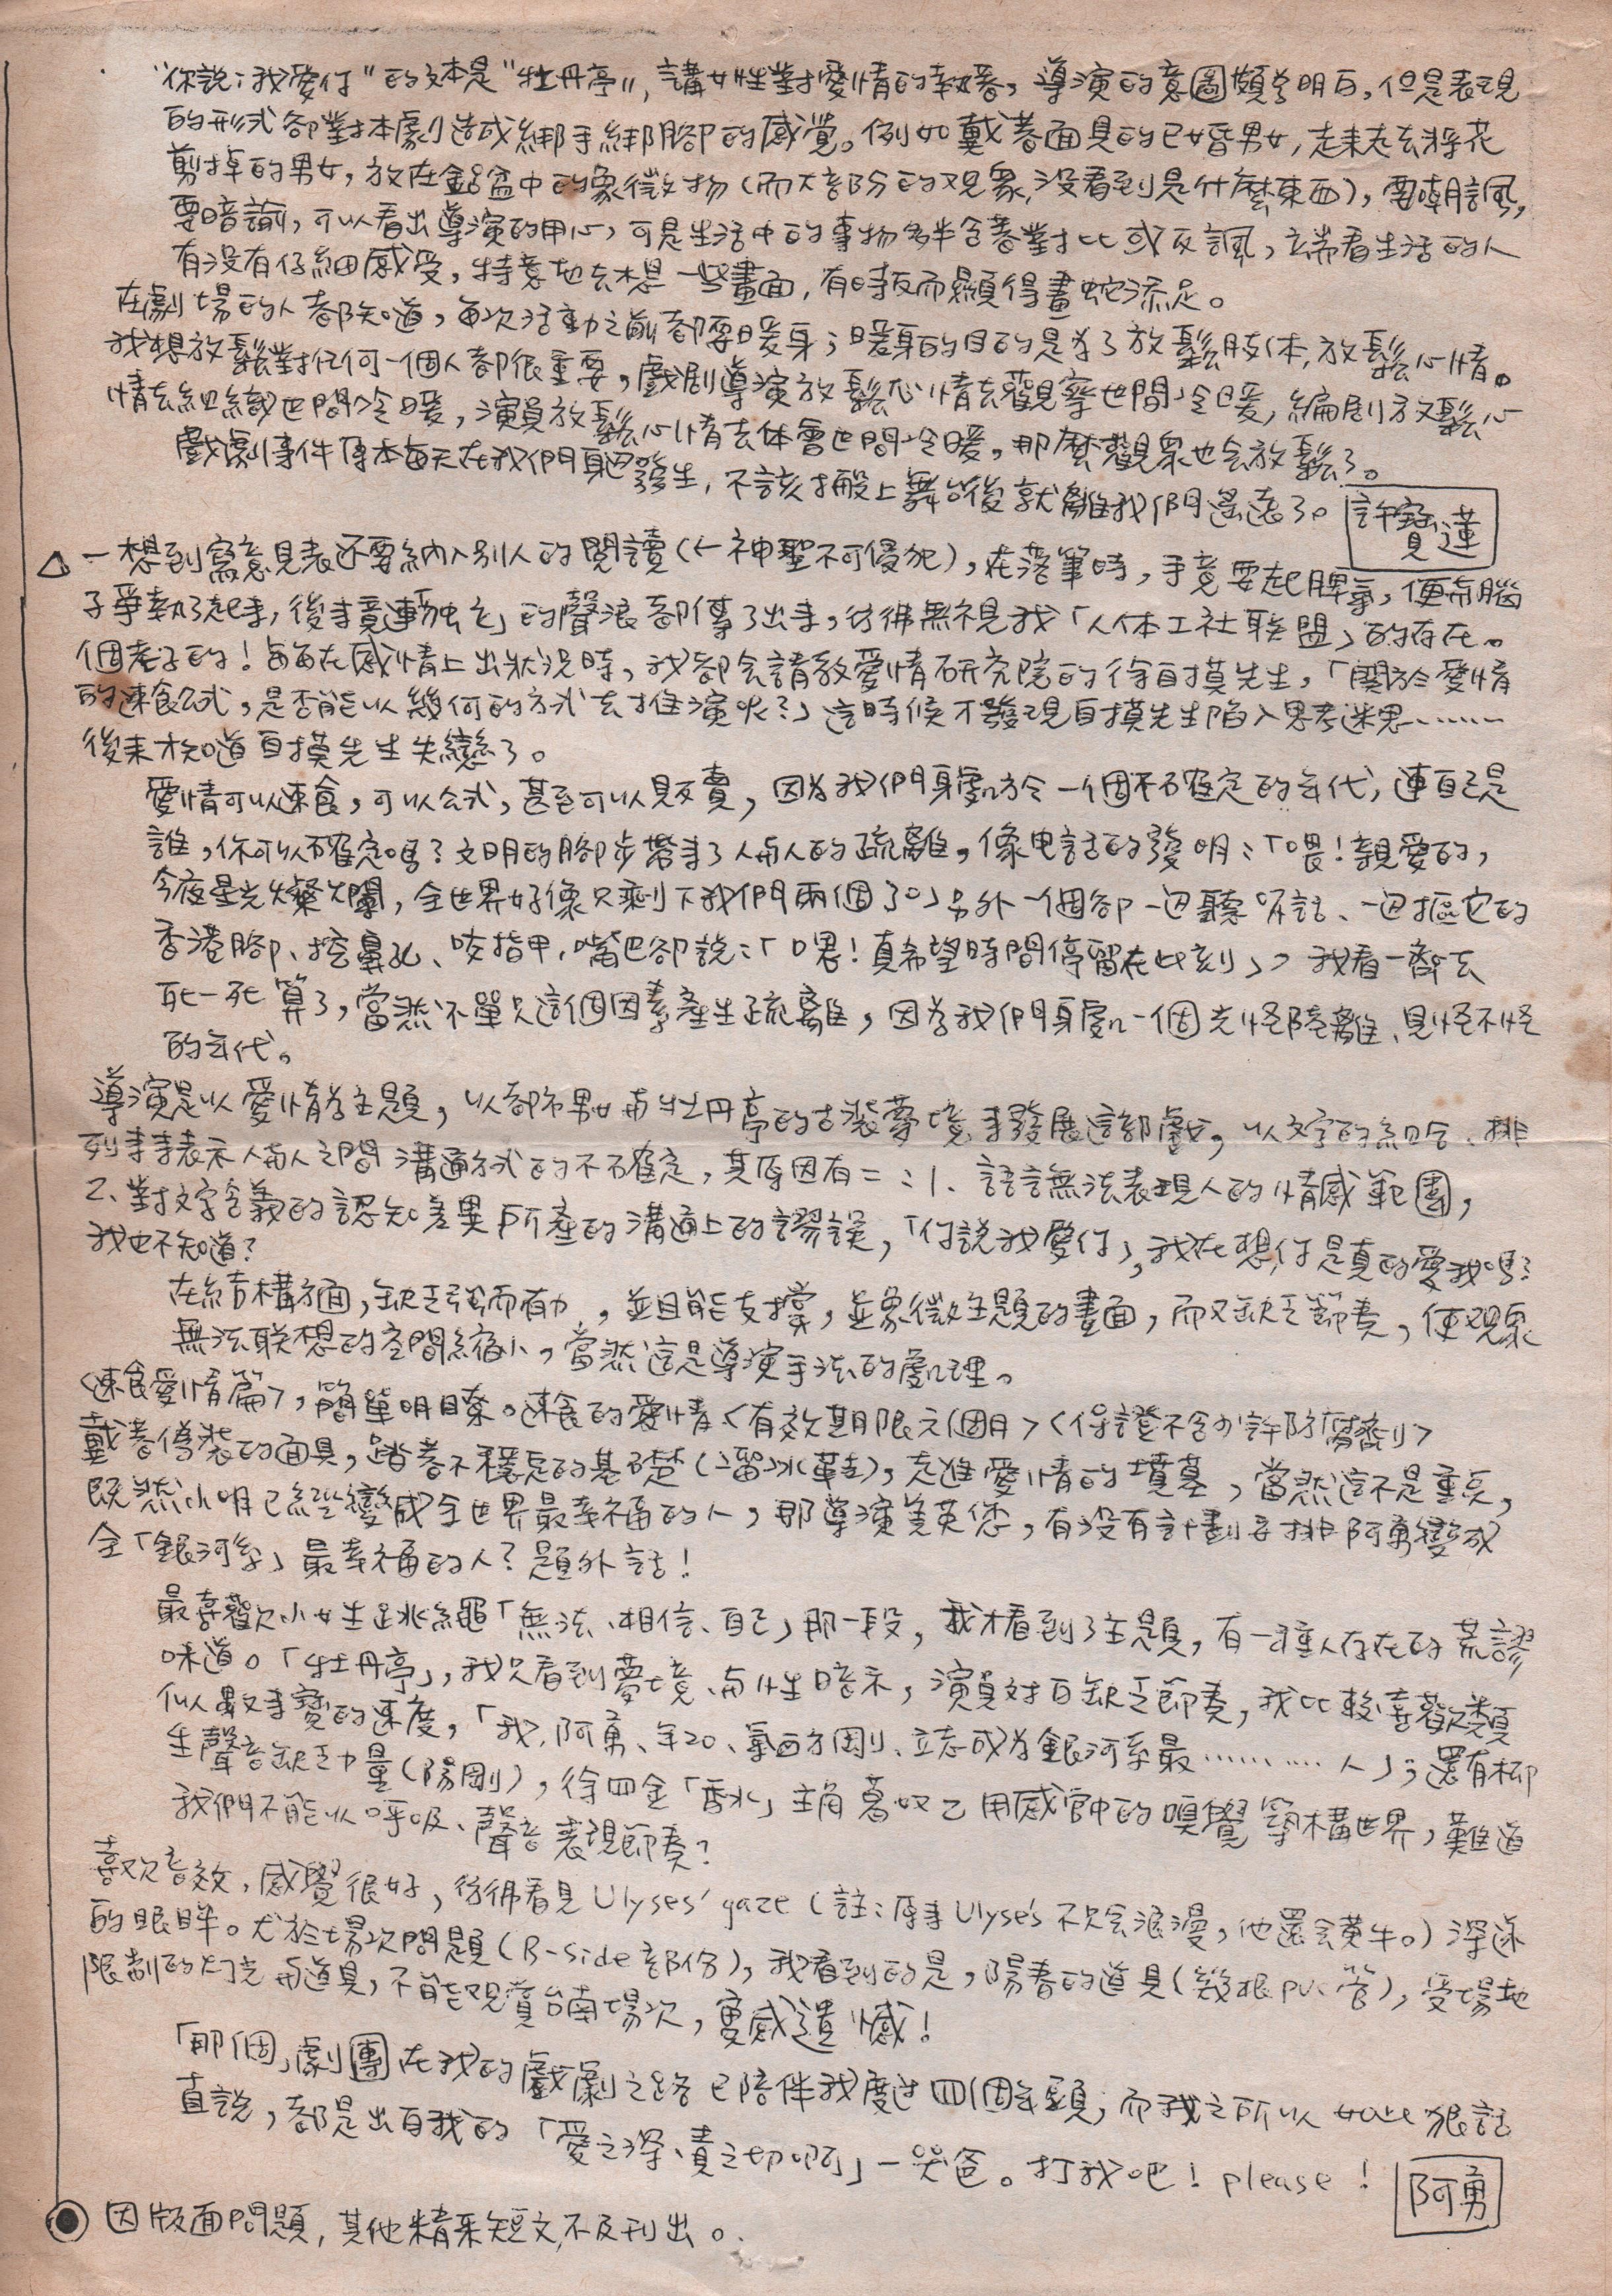 "你說:我愛你"的文本是"牡丹亭",講女性對愛情的執著,導演的意圖頗為明白,但是表現
的形式卻對本劇造成綁手綁腳的感覺。例如戴著面具的已婚男女,走來走去將花
剪掉的男女,放在鋁盆中的象徵物(而大部分的观象,没看到是什麼東西),要嘲諷,
要暗諭,可以看出導演的用心,可是生活中的事物多半含著對比或反諷,端看生活的人
有没有仔細感受,特意地去想一些畫面,有時反而顯得畫蛇添足。
在劇場的人都知道,每次活動之前都要暖身;暖身的目的是为了放鬆肢体,放鬆心情。
我想放鬆對任何一個人都很重要,戲剧導演放鬆心情去觀察世間冷暖,編剧放鬆心
情去組織世間冷暖,演員放鬆心情去体會世間冷暖,那麼觀象也会放鬆了。
戲劇事件原本每天在我們身邊發生,不該搬上舞台後就離我們遥遠了。許寶蓮
△一想到寫意見表还要納入別人的閱讀(←神聖不可侵犯),在落筆時,手竟耍起脾氣,便與腦
子爭執了起来,後来竟連「触乞」的聲浪都傳了出来,彷彿無視我「人体工社联盟」的存在。
個老子的!每每在感情上出狀況時,我都会請教愛情研究院的徐自摸先生,「關於愛情
的速食公式,是否能以幾何的方式去推演呢?」這時候才發現自摸先生陷入思考迷思‥‥‥‥
後来才知道自摸先生失戀了。
愛情可以速食,可以公式,甚至可以販賣,因为我們身處於一個不確定的年代,連自己是
誰,你可以不確定嗎?文明的腳步帶来了人與人的疏離,像电話的發明:「喂!親愛的,
今夜星光燦爛,全世界好像只剩下我們兩個了。」另外一個卻一边聽電話、一边摳它的
香港腳、挖鼻孔、咬指甲,嘴巴卻說:「喂!真希望時間停留在此刻」,我看一齊去
死一死算了,當然不單只這個因素產生疏離,因为我們身處一個光怪陸離、見怪不怪
的年代。
導演是以愛情为主題,以都市男女與牡丹亭的古裝夢境来發展這部戲,以文字的組合、排
列来表示人與人之間溝通方式的不確定,其原因有二:1、語言無法表現人的情感範圍,
2、對文字含義的認知差異所產的溝通上的謬誤,「你說我愛你」,我在想,你是真的愛我嗎?
我也不知道?
在結構方面,缺乏強而有力,並且能支撐,並象徵主題的畫面,而又缺乏節奏,使观象
無法联想的空間縮小,當然這是導演手法的處理。
〈速食愛情篇〉,簡單明瞭。速食的愛情〈有效期限六個月〉〈保證不含少許防腐劑〉
戴著偽裝的面具,踏著不穩定的基礎(溜冰鞋),走進愛情的墳墓,當然這不是重点,
既然小明已經變成全世界最幸福的人,那導演美英您,有没有計劃安排阿勇變成
全「銀河系」最幸福的人?題外話!
最喜歡小女生跳繩「無法、相信、自己」那一段,我才看到了主題,有一種人存在的荒謬
味道。「牡丹亭」,我只看到夢境、與性暗示,演員对白缺乏節奏,我比較喜歡類
似數来寶的速度,「我,阿勇、年20、氣血方剛、立志成为銀河系最‥‥‥‥‥人」;還有柳
生聲音缺乏力量(陽剛),徐四金「香水」主角葛奴乙用感官中的嗅覺築構世界,難道
我們不能以呼吸、聲音表現節奏?
喜欢音效,感覺很好,彷彿看見 Ulyses' gaze (註:原来 Ulyse's 不只会浪漫,他還会黄牛。)深邃
的眼眸。尤於場次問題(B-side部份),我看到的是,陽春的道具(幾根pvc管),受場地
限制的灯光與道具,不能观賞台南場次,寔感遺憾!
「那個」劇團在我的戲劇之路已陪伴我度过四個年頭,而我之所以如此狠話
直說,都是出自我的「愛之深、責之切啊」一哭爸。打我吧!please!阿勇
◉因版面問題,其他精采短文,不及刊出。